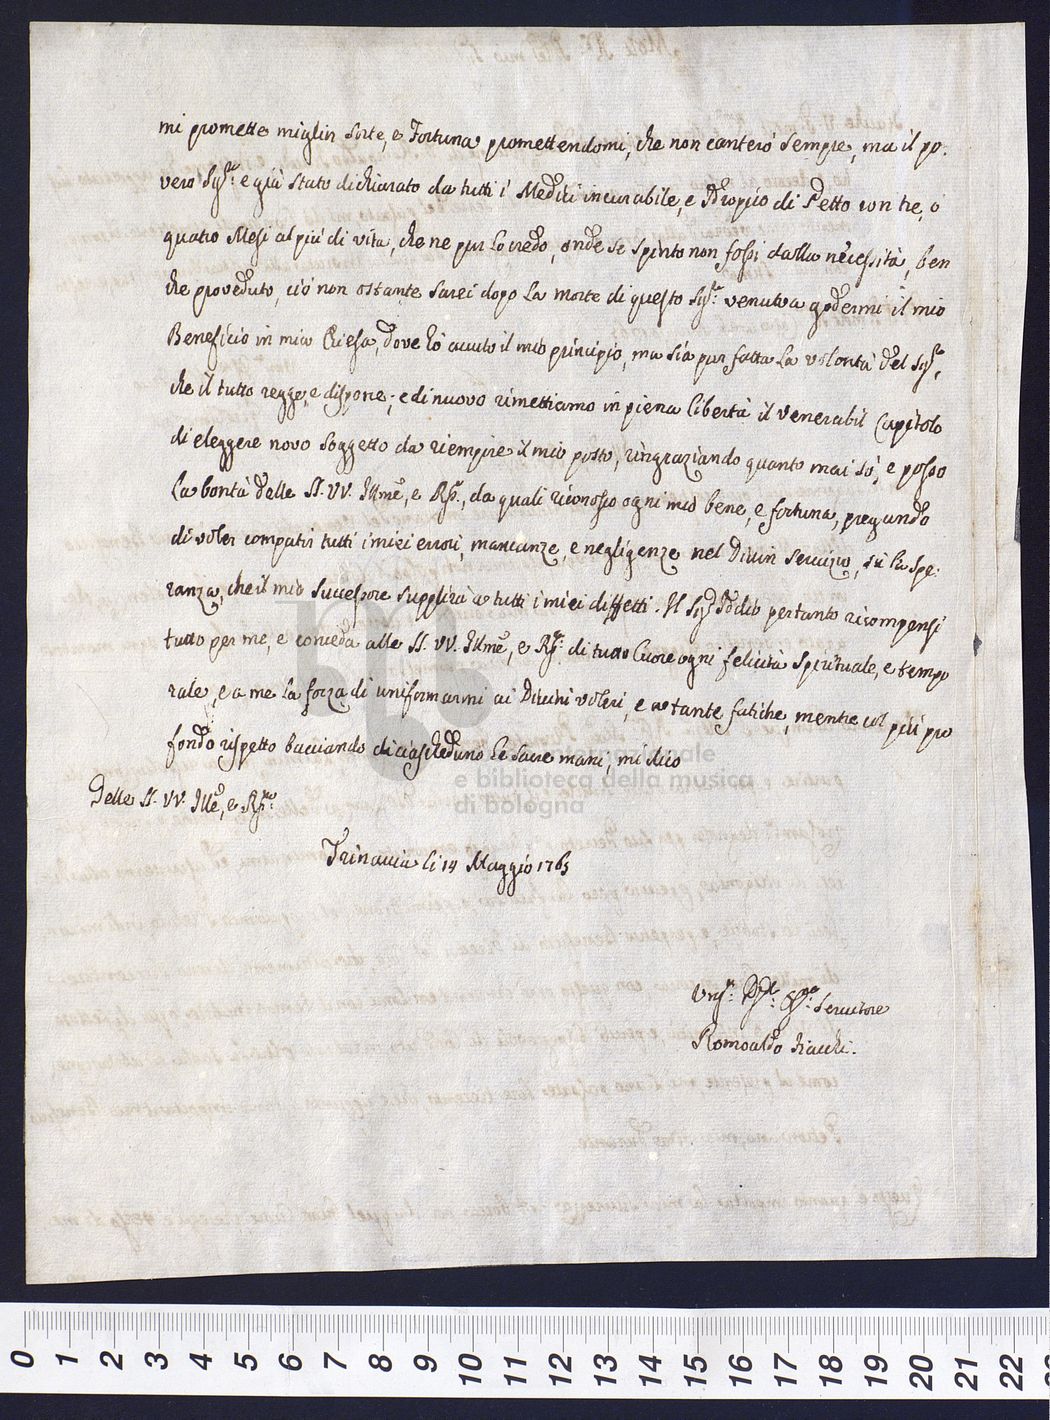 mi promette miglior sorte, e Fortuna promettendomi, che non canterò sempre, ma il po-
vero Sig.re e già stato dichiarato da tutti i Medici incurabile, e Itropico di Petto con tre, o
quatro Mesi al più di vita, che ne pur lo credo, onde se spinto non fossi dalla necessità, ben
che proveduto, ciò non ostante sarei dopo la morte di questo Sig.re venuto a godermi il mio
Beneficio in mia Chiesa, dove hò avuto il mio principio, ma sia pur fatta la volontà del Sig.re
che il tutto regge, e dispone; e di nuovo rimettiamo in piena libertà il Venerabil Capitolo
di eleggere novo soggetto da riempire il mio posto, ringraziando quanto mai sò, e posso
la bontà delle SS. VV. Illme, e R., da quali riconosco ogni mio bene, e fortuna, pregando
di voler compatir tutti i miei errori, mancanze, e negligenze nel Divin Servizio, sù la spe-
ranza, che il mio Successore supplirà a tutti i miei diffetti. Il Sig. Iddio pertanto ricompensi
tutto per me, e conceda alle SS. VV. Illme, e R. di tutto Cuore ogni felicità spirituale, e tempo
rale, e a me la forza di uniformarmi ai Divini voleri, e a tante fatiche, mentre col più pro
fondo rispetto bacciando di ciascheduno le sacre mani, mi dico
Delle SS. VV. Ille, e R.me
li 14 Maggio 1763
Servitore
Romoaldo
internazionale
e biblioteca della musica
di bologna
0 1 2 3 4 5 6 7 8 9 10 11 12 13 14 15 16 17 18 19 20 21 22